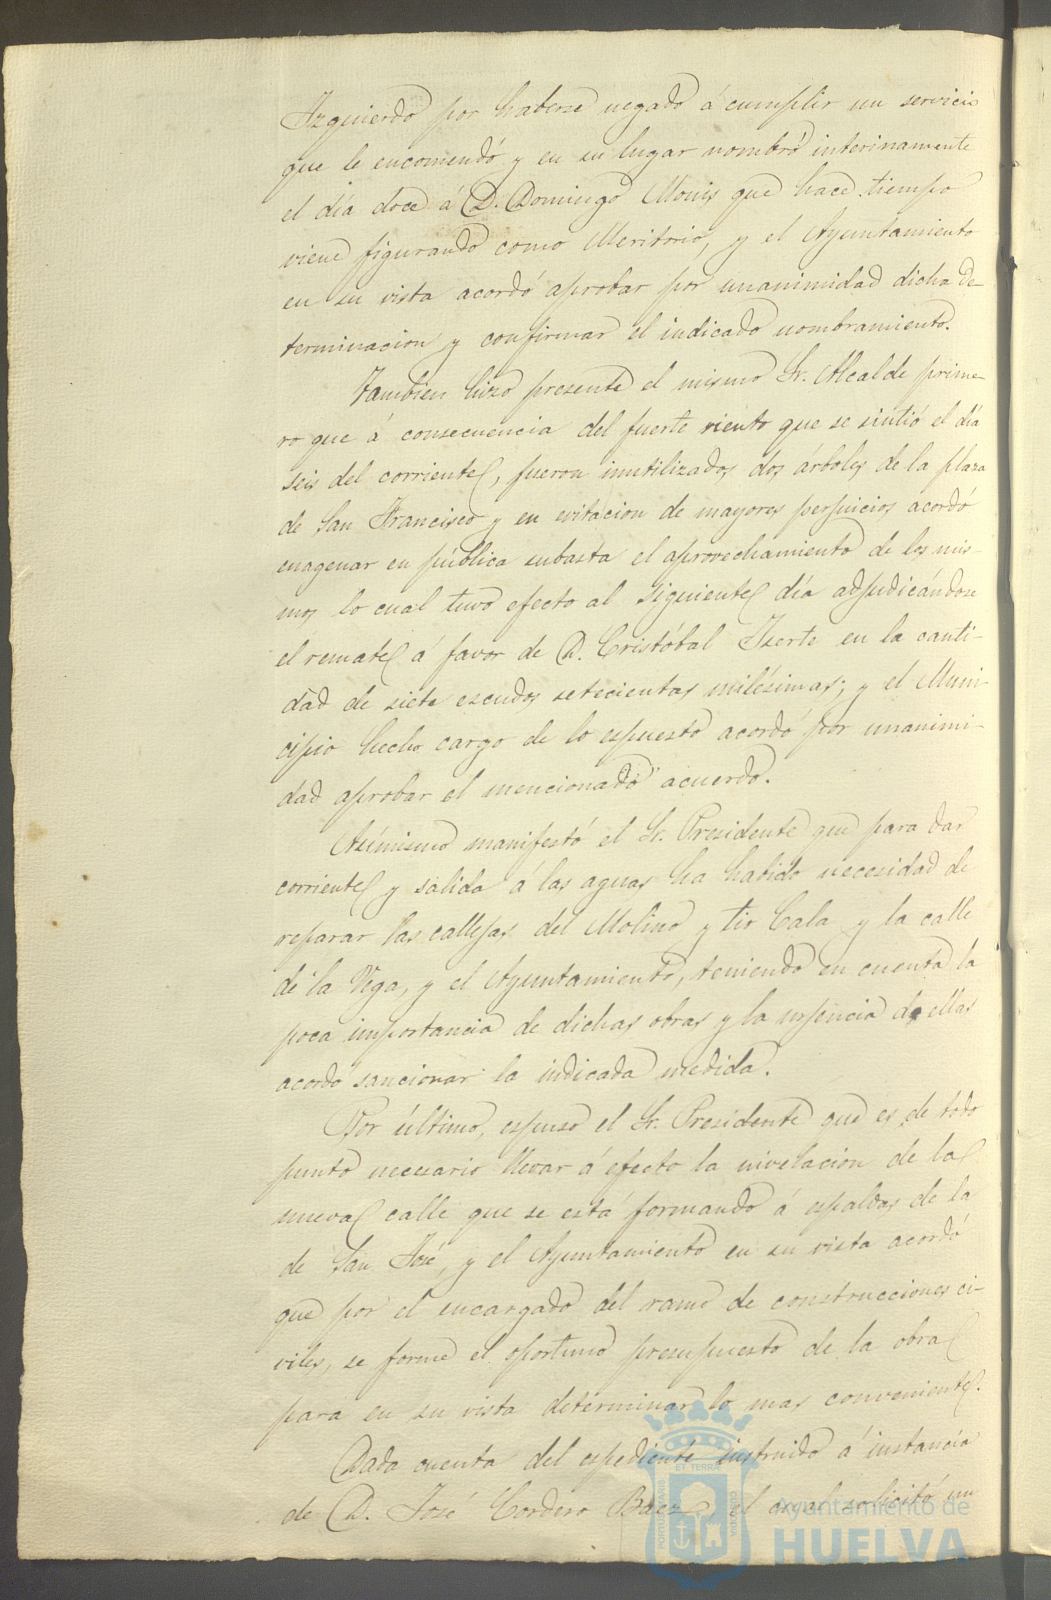 Izquierdo por haberse negado á cumplir un servicio
que le encomendó y en su lugar nombró interinamente
el día doce á D. Domingo Monis que hace tiempo
viene figurando como Meritorio, y el Ayuntamiento
en su vista acordó aprobar por unanimidad dicha de-
terminacion y confirmar el indicado nombramiento.
Tambien hizo presente el mismo Sr. Alcalde prime-
ro que á consecuencia del fuerte viento que se sintió el día
seis del corriente, fueron inutilizados dos árboles de la plaza
de San Francisco y en evitacion de mayores perjuicios acordó
enagenar en pública subasta el aprovechamiento de los mis-
mos lo cual tuvo efecto al siguiente día adjudicándose
el remate á favor de D. Cristóbal Iserte en la canti-
dad de siete escudos setecientas milésimas; y el Muni-
cipio hecho cargo de lo espuesto acordó por unanimi-
dad aprobar el mencionado acuerdo.
Asímismo manifestó el Sr. Presidente que para dar
corriente y salida á las aguas ha habido necesidad de
reparar las callejas del Molino y tir Cala y la calle
de la Vega, y el Ayuntamiento, teniendo en cuenta la
poca importancia de dichas obras y la urgencia de ellas
acordó sancionar la indicada medida.
Por último, espuso el Sr. Presidente que es de todo
punto necesario llevar á efecto la nivelacion de la
nueva calle que se está formando á espaldas de la
de San José, y el Ayuntamiento en su vista acordó
que por el encargado del ramo de construcciones ci-
viles, se forme el oportuno presupuesto de la obra
para en su vista determinar lo mas conveniente.
Dada cuenta del espediente instruido á instancia
de D. José Cordero Baez el cual solicitó un
Ayuntamiento de
HUELVA